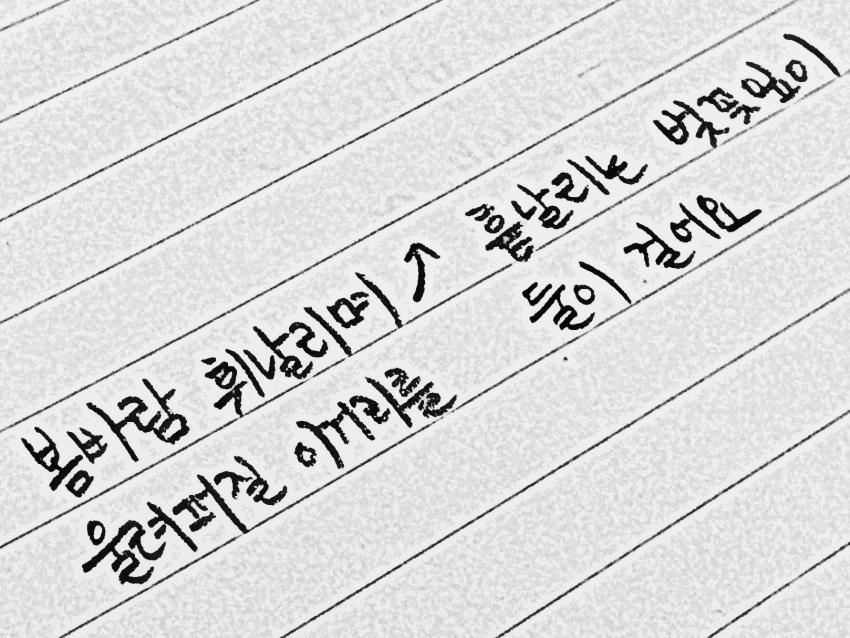 봄바람 휘날리며↗ 흩날리는 벚꽃잎이
울려퍼질 이거리를 둘이 걸어요